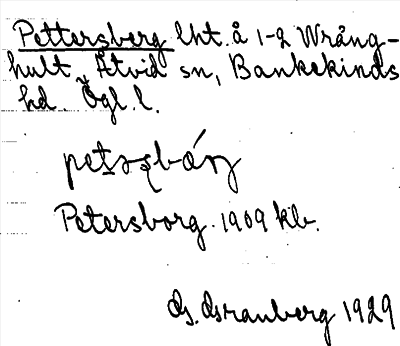 Pettersberg lht. å 1-2 Wrång-
hult, Åtvid sn, Bankekinds
hd. Ögl. l.
Petersborg. 1909 kb.
1929